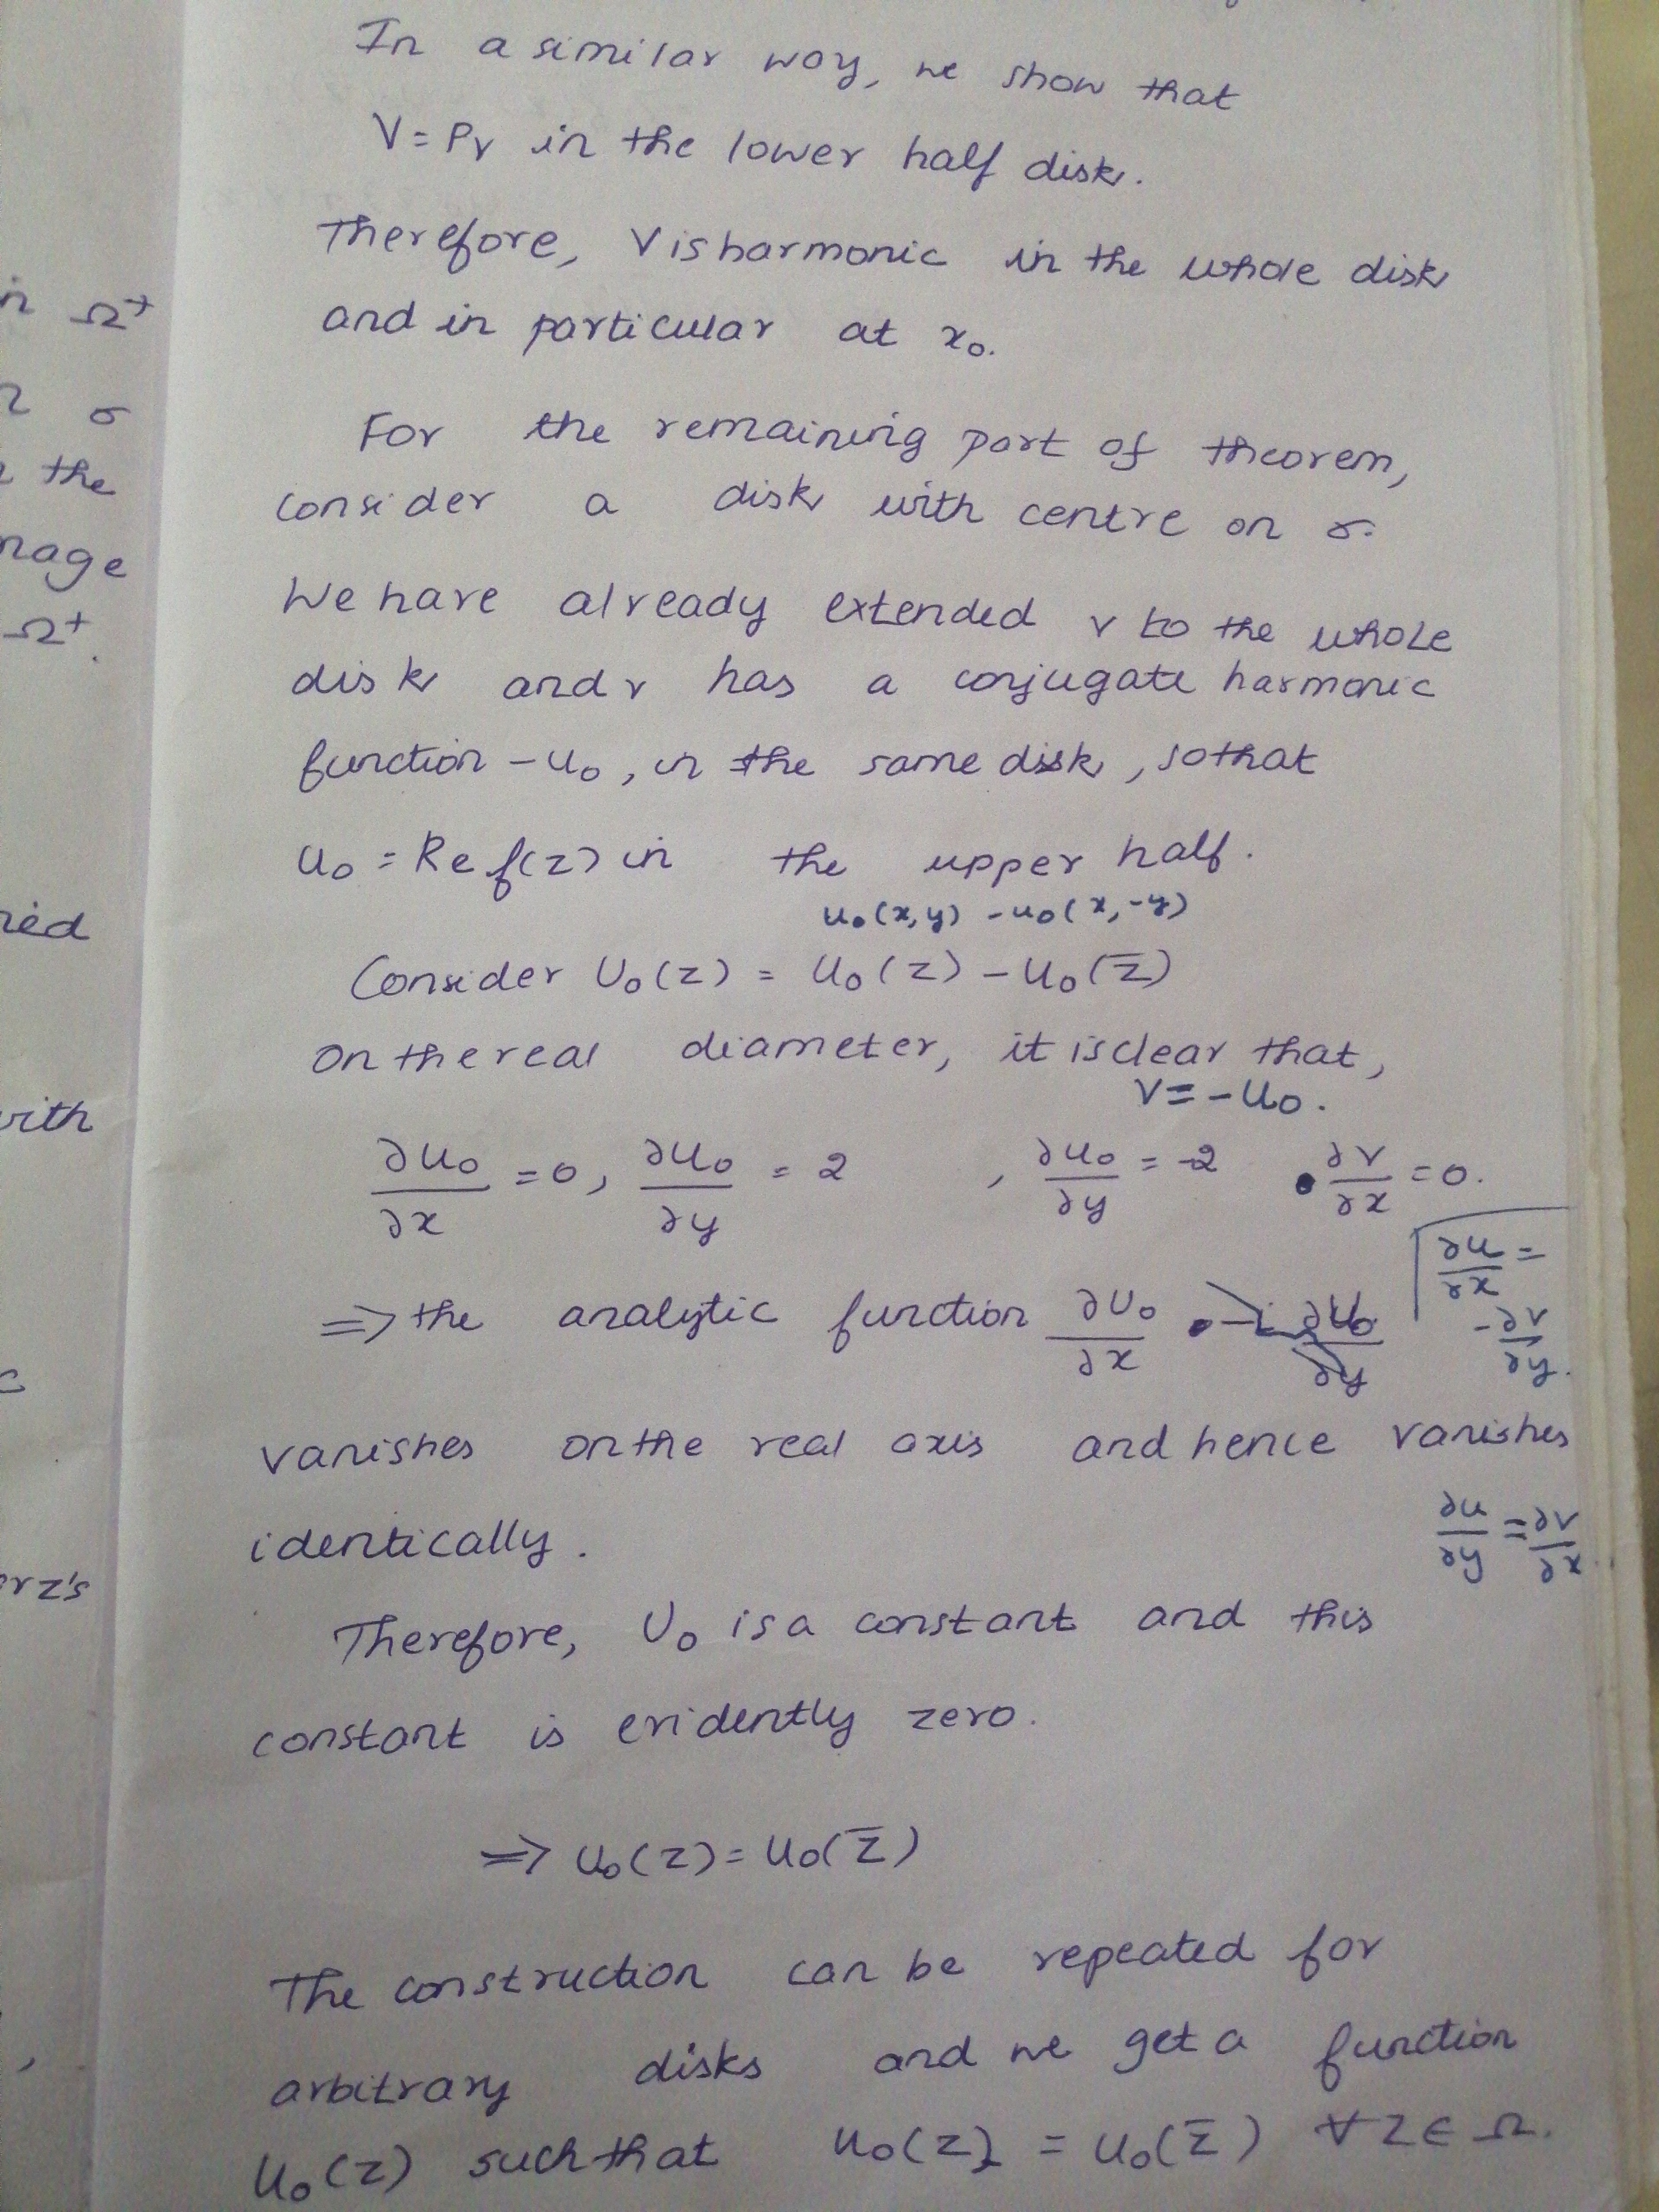 In a similar way, we show that
V = Pv in the lower half disk.
Therefore, V is harmonic in the whole disk
and in particular at x₀.
For the remaining part of theorem,
consider a disk with centre on σ.
We have already extended v to the whole
disk and v has a conjugate harmonic
function -u₀, in the same disk, so that
u₀ = Re f(z) in the upper half.
u₀(x,y) - u₀(x,-y)
Consider U₀(z) = u₀(z) - u₀(z̄)
On the real diameter, it is clear that,
V = -u₀.
∂u₀/∂x = 0, ∂u₀/∂y = 2 , ∂u₀/∂y = -2 ∂v/∂x = 0.
∂u/∂x = -∂v/∂y.
⇒ the analytic function ∂U₀/∂x - i ∂U₀/∂y
vanishes on the real axis and hence vanishes
identically.
∂u/∂y = ∂v/∂x
Therefore, U₀ is a constant and this
constant is evidently zero.
⇒ u₀(z) = u₀(z̄)
The construction can be repeated for
arbitrary disks and we get a function
u₀(z) such that u₀(z) = u₀(z̄) ∀ z ∈ Ω.
in Ω⁺
σ
the
Ω⁺.
with